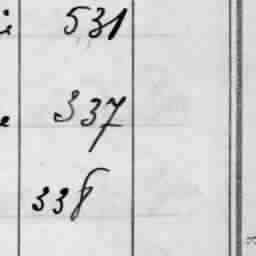 531
337
338